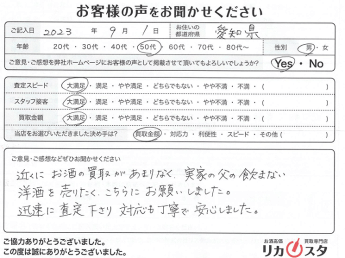 お客様の声をお聞かせください
ご記入日 2023 年 9 月 1 日 お住いの都道府県 愛知県
年齢 20代 ・ 30代 ・ 40代 ・ 50代 ・ 60代 ・ 70代 ・ 80代〜 性別 男 ・ 女
ご意見・ご感想を弊社ホームページにお客様の声として掲載させて頂いてもよろしいでしょうか? Yes ・ No
査定スピード 大満足 ・ 満足 ・ やや満足 ・ どちらでもない ・ やや不満 ・ 不満 ・ ( )
スタッフ接客 大満足 ・ 満足 ・ やや満足 ・ どちらでもない ・ やや不満 ・ 不満 ・ ( )
買取金額 大満足 ・ 満足 ・ やや満足 ・ どちらでもない ・ やや不満 ・ 不満 ・ ( )
当店をお選びいただきました決め手は? 買取金額 ・ 対応力 ・ 利便性 ・ スピード ・ その他 ( )
ご意見・ご感想などぜひお聞かせください
近くにお酒の買取があまりなく、実家の父の飲まない
洋酒を売りたく、こちらにお願いしました。
迅速に査定下さり対応も丁寧で安心しました。
ご協力ありがとうございました。
この度は誠にありがとうございました。
お酒高価買取専門店
リカスタ